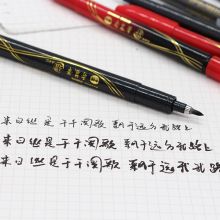 来日纵是千千阕歌 飘于远方我路上
来日纵是千千阕歌 飘于远方我路上
来日纵是千千阕歌 飘于远方我路